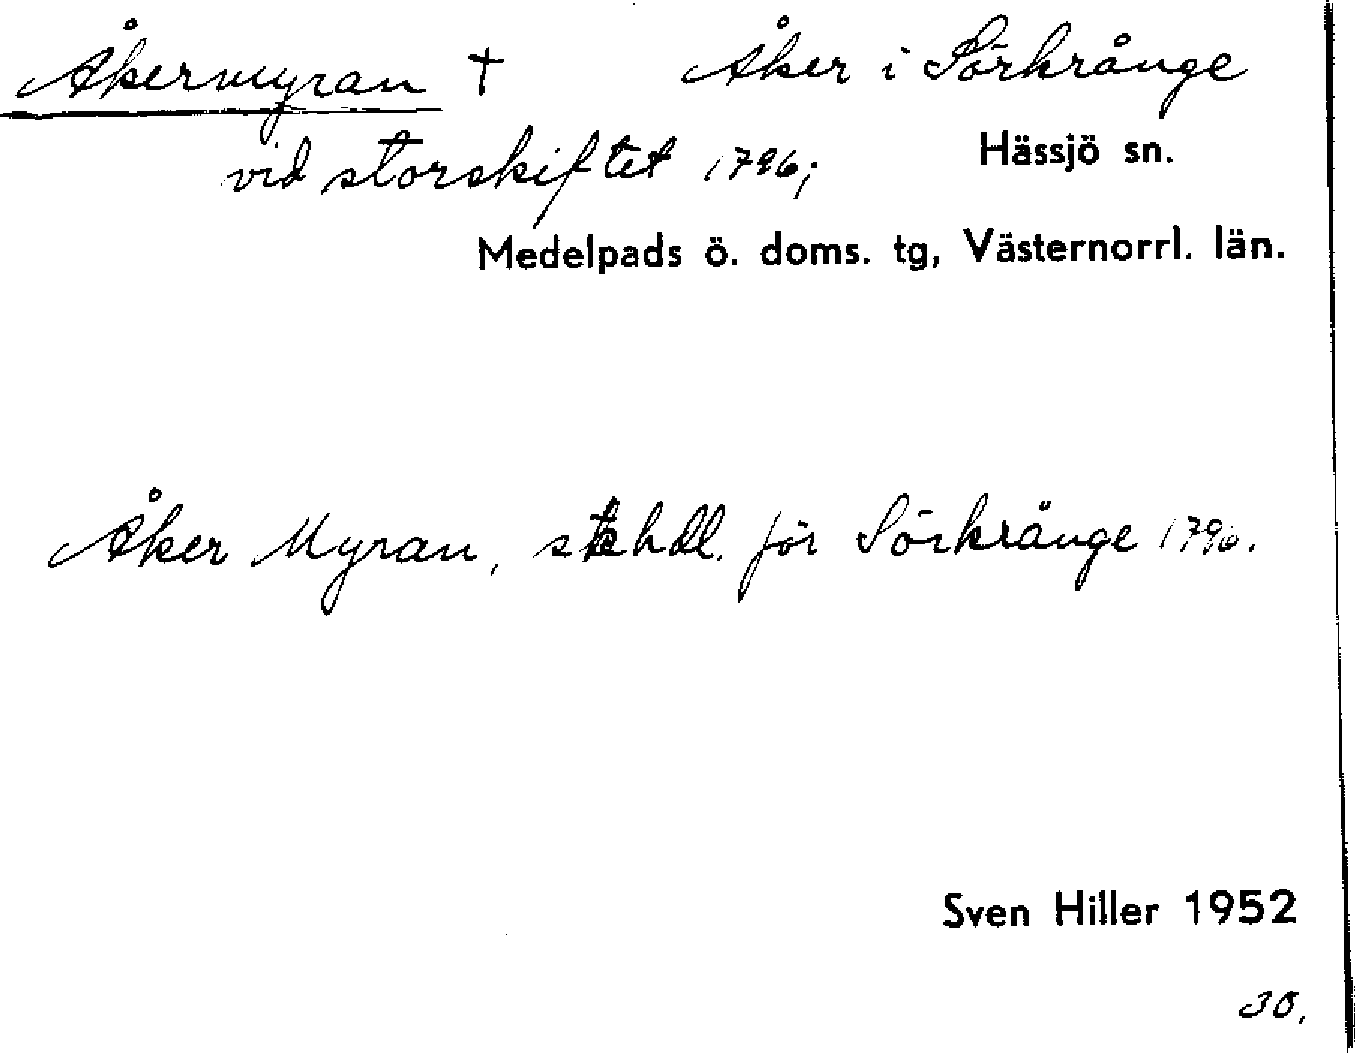 Åkermyran † Åker i Sörkrånge
vid storskiftet 1796; Hässjö sn.
Medelpads ö. doms. tg, Västernorrl. län.
Åker Myran, stshdl. för Sörkrånge 1796.
Sven Hiller 1952
30,